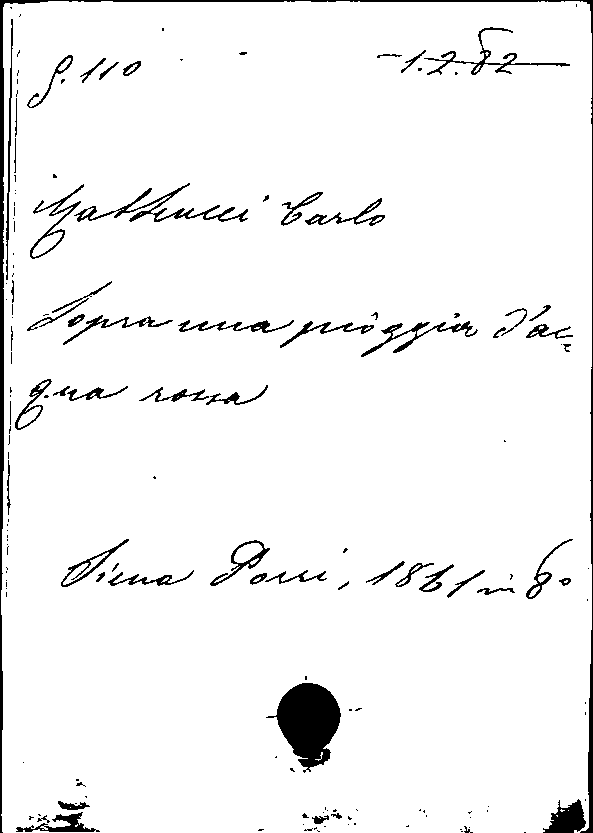 S. 110
1.2.82
Matteucci Carlo
Sopra una pioggia d'ac=
qua rossa
Siena Porri, 1861 in 8°